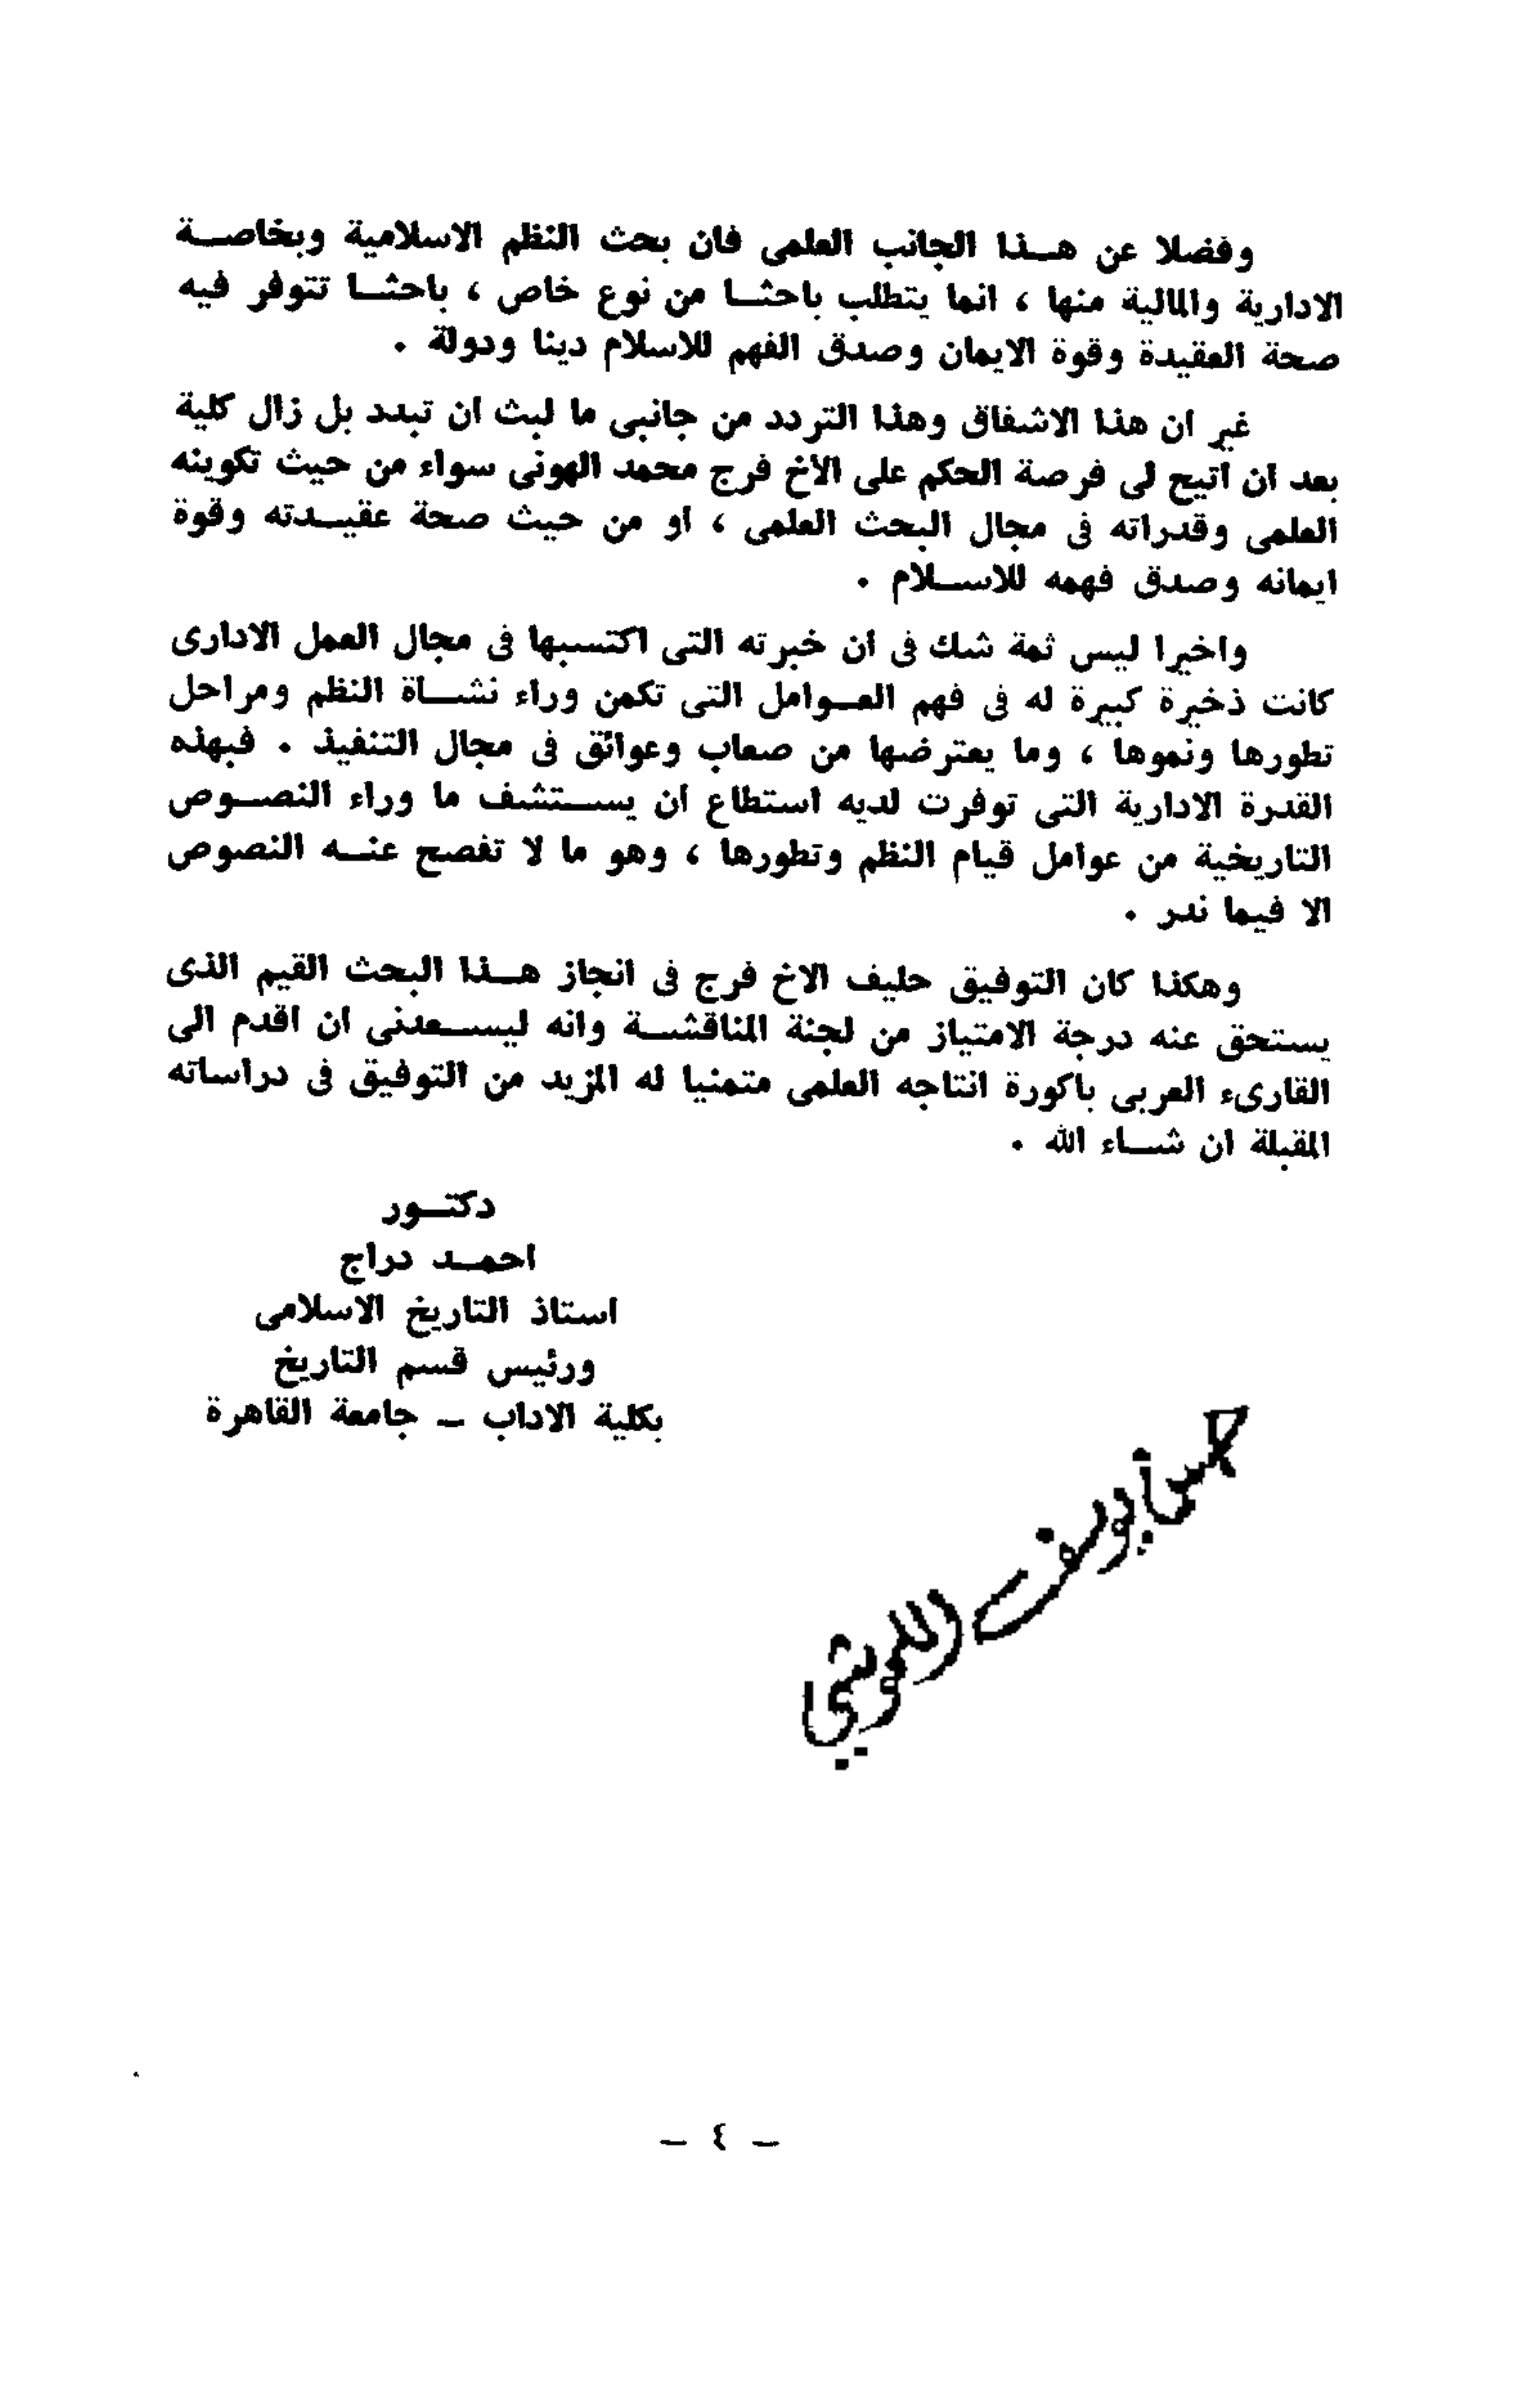 وفضلا عن هـذا الجانب العلمى فان بحث النظم الاسلامية وبخاصـة
الادارية والمالية منها ، انما يتطلب باحثـا من نوع خاص ، باحثـا تتوفر فيه
صحة العقيدة وقوة الايمان وصدق الفهم للاسلام دينا ودولة .
غير ان هذا الاشفاق وهذا التردد من جانبى ما لبث ان تبدد بل زال كلية
بعد ان اتيح لى فرصة الحكم على الأخ فرج محمد الهونى سواء من حيث تكوينه
العلمى وقدراته فى مجال البحث العلمى ، او من حيث صحة عقيـدته وقوة
ايمانه وصدق فهمه للاسـلام .
واخيرا ليس ثمة شك فى ان خبرته التى اكتسبها فى مجال العمل الادارى
كانت ذخيرة كبيرة له فى فهم العـوامل التى تكمن وراء نشـاة النظم ومراحل
تطورها ونموها ، وما يعترضها من صعاب وعوائق فى مجال التنفيذ . فبهذه
القدرة الادارية التى توفرت لديه استطاع ان يسـتشف ما وراء النصـوص
التاريخية من عوامل قيام النظم وتطورها ، وهو ما لا تفصح عنـه النصوص
الا فيما ندر .
وهكذا كان التوفيق حليف الاخ فرج فى انجاز هـذا البحث القيم الذى
يستحق عنه درجة الامتياز من لجنة المناقشـة وانه ليسـعدنى ان اقدم الى
القارىء العربى باكورة انتاجه العلمى متمنيا له المزيد من التوفيق فى دراساته
المقبلة ان شـاء الله .
دكتـور
احمـد دراج
استاذ التاريخ الاسلامى
ورئيس قسم التاريخ
بكلية الاداب ـ جامعة القاهرة
ـ ٤ ـ